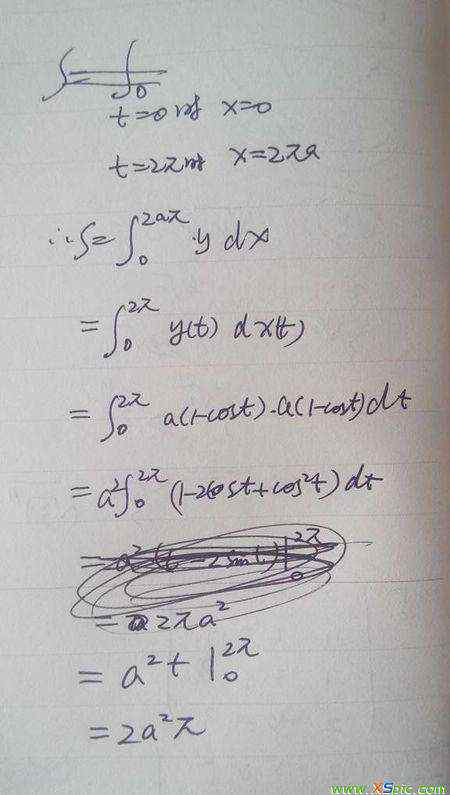 t=0时 x=0
t=2π时 x=2πa
∴S=∫₀^{2aπ} y dx
=∫₀^{2π} y(t) dx(t)
=∫₀^{2π} a(1-cost)·a(1-cost)dt
=a²∫₀^{2π} (1-2cost+cos²t)dt
=2πa²
=a²t|₀^{2π}
=2a²π
www.XSbic.com